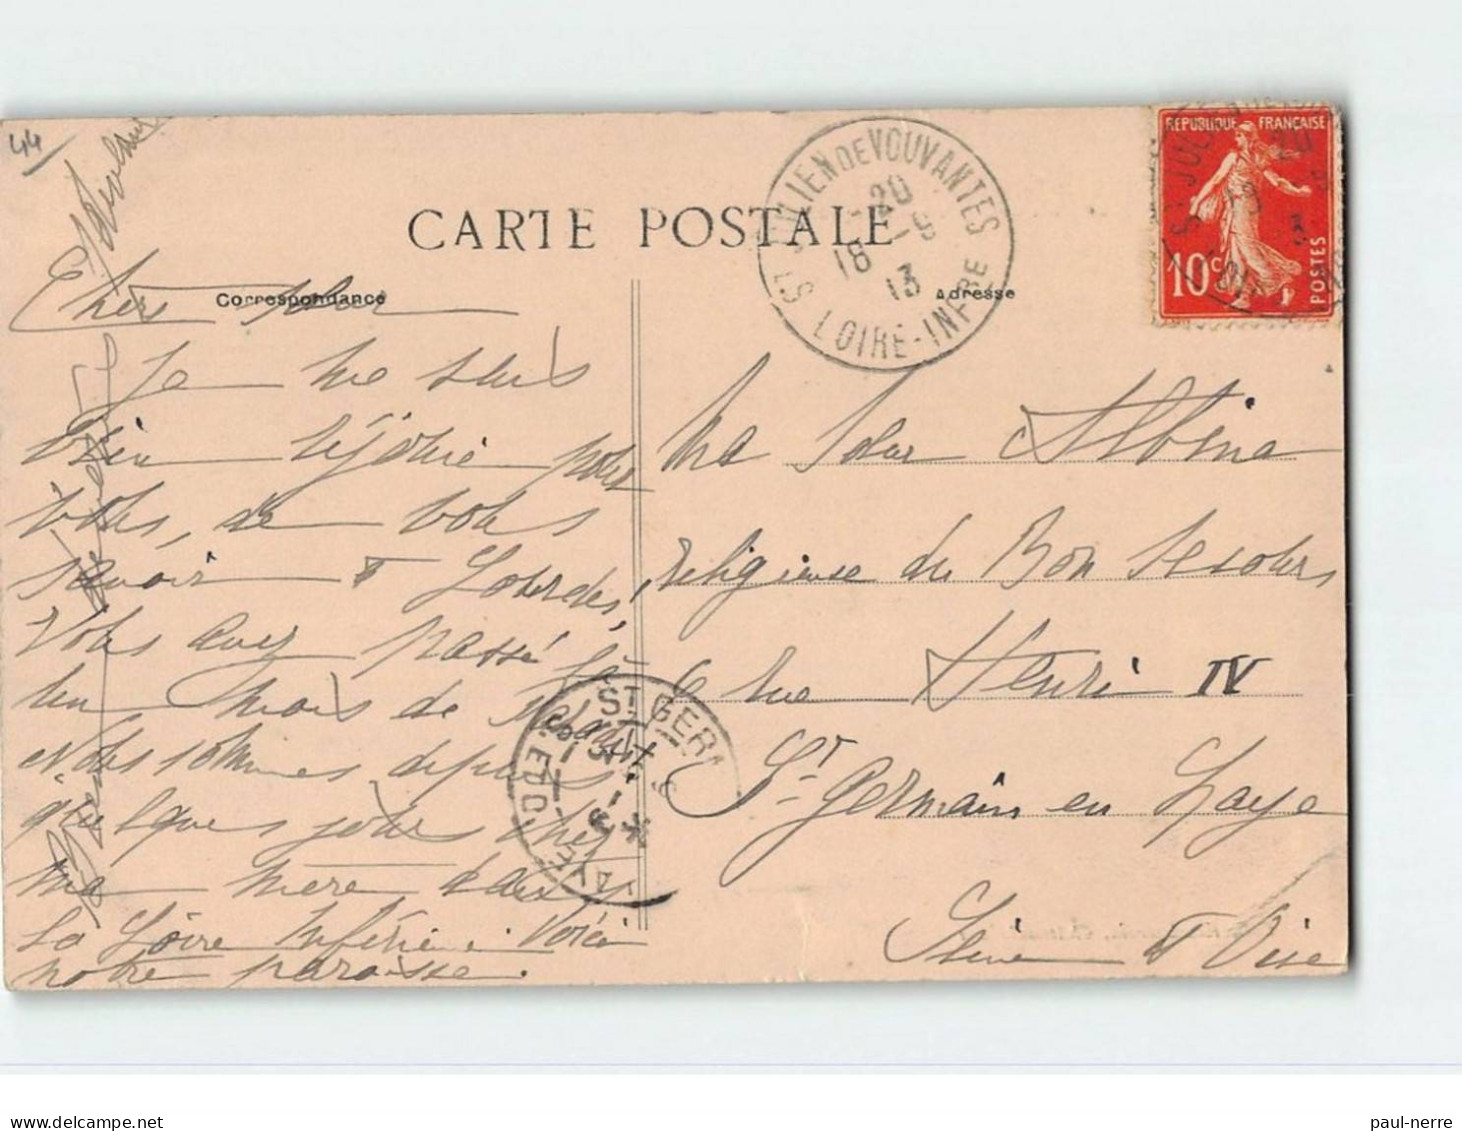 44
CARTE POSTALE
Correspondance
Adresse
ST JULIEN DE VOUVANTES
20
18 -9
13
LOIRE-INFRE
REPUBLIQUE FRANÇAISE
10c
POSTES
Chère Sœur
Je me suis
bien réjouie pour
vous, de vous
savoir à Lourdes,
Vous avez passé là
un mois de
Nous sommes depuis
quelques jours chez
ma mère dans
la Loire Inférie. Voici
notre paroisse.
Ma Sœur Albina
religieuse du Bon Secours
6 rue Henri IV
St Germain en Laye
Seine et Oise
ST GER
paul-nerre